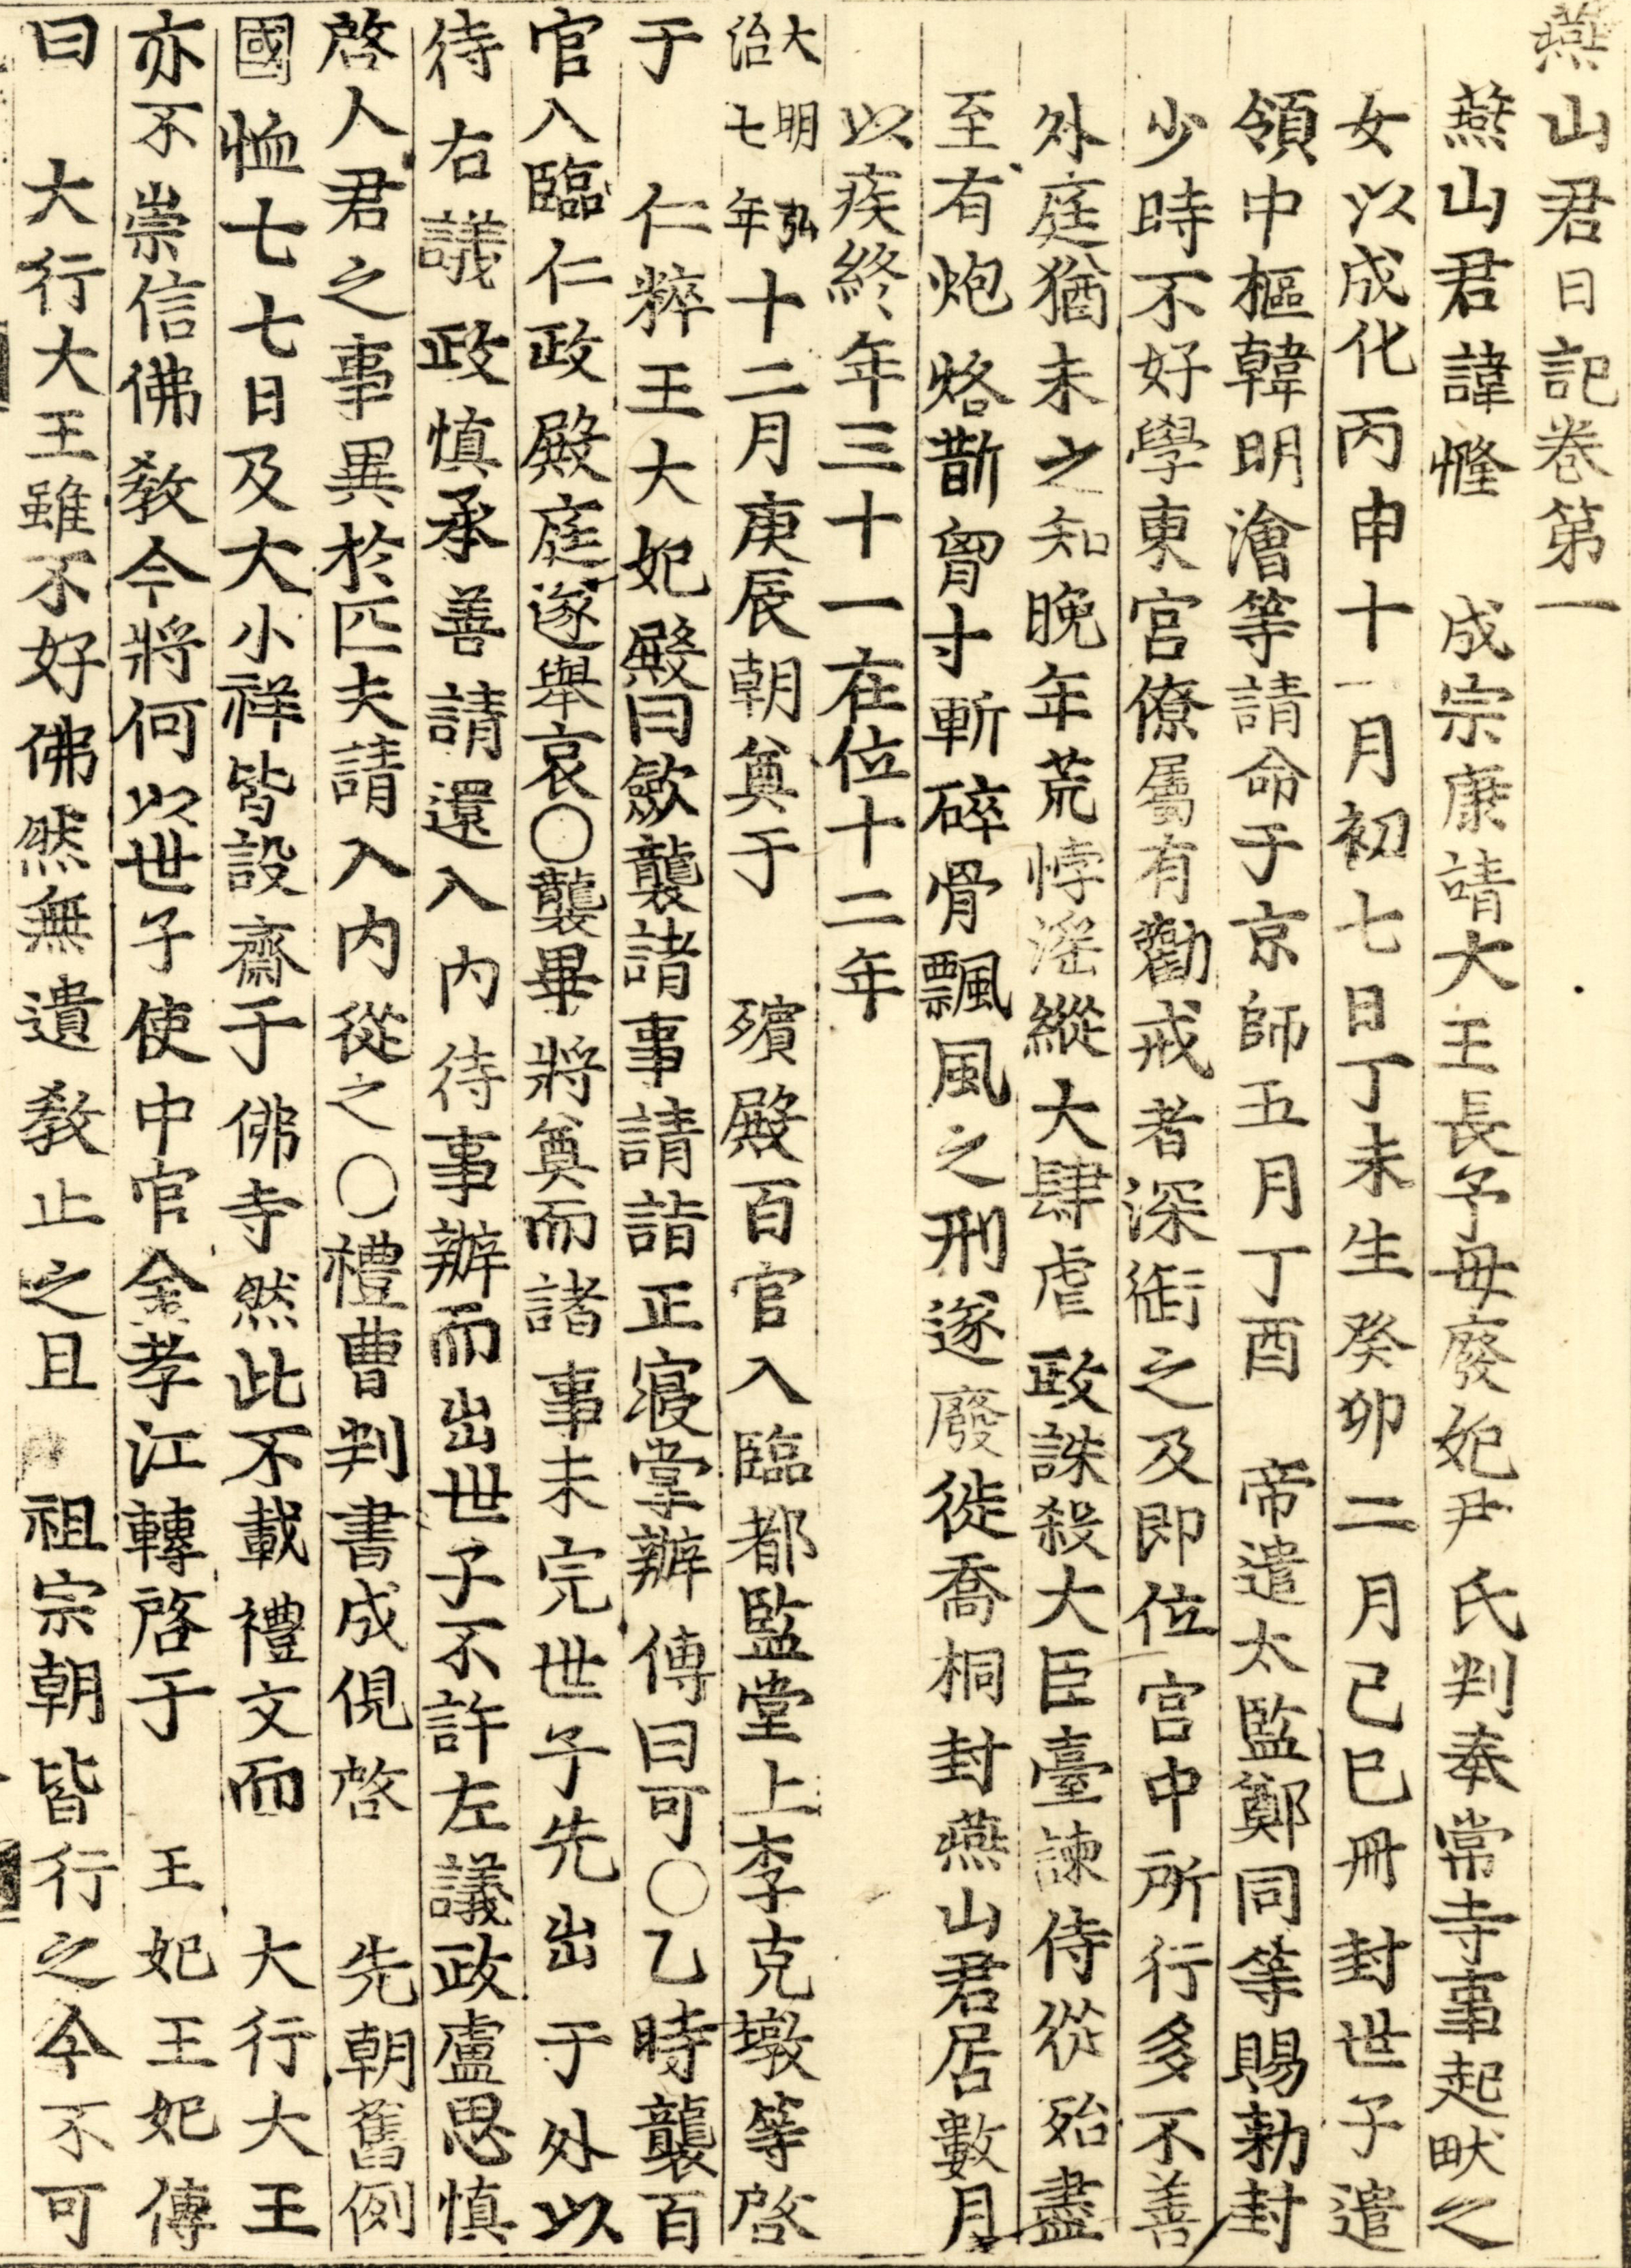 燕山君日記卷第一
燕山君諱㦕　成宗康靖大王長子母廢妃尹氏判奉常寺事起畎之
女以成化丙申十一月初七日丁未生癸卯二月己巳冊封世子遣
領中樞韓明澮等請命于京師五月丁酉　帝遣太監鄭同等賜勅封
少時不好學東宮僚屬有勸戒者深銜之及即位宮中所行多不善
外庭猶未之知晚年荒悖滛縱大肆虐政誅殺大臣臺諫侍從殆盡
至有炮烙斮胷寸斬碎骨飄風之刑遂廢徙喬桐封燕山君居數月
以疾終年三十一在位十二年
大明弘治七年十二月庚辰朝奠于　殯殿百官入臨都監堂上李克墩等啓
于　仁粹王大妃殿曰歛襲諸事請詣正寢掌辦傳曰可○乙時襲百
官入臨仁政殿庭遂舉哀○襲畢將奠而諸事未完世子先出于外以
待右議政愼承善請還入內待事辦而出世子不許左議政盧思愼
啓人君之事異於匹夫請入內從之○禮曹判書成俔啓　先朝舊例
國恤七七日及大小祥皆設齋于佛寺然此不載禮文而　大行大王
亦不崇信佛敎今將何以世子使中官金孝江轉啓于　王妃王妃傳
曰　大行大王雖不好佛然無遺敎止之且　祖宗朝皆行之今不可